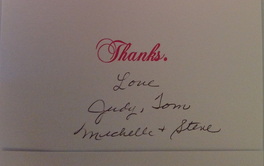 Thanks.
Love
Judy, Tom
Michelle + Steve